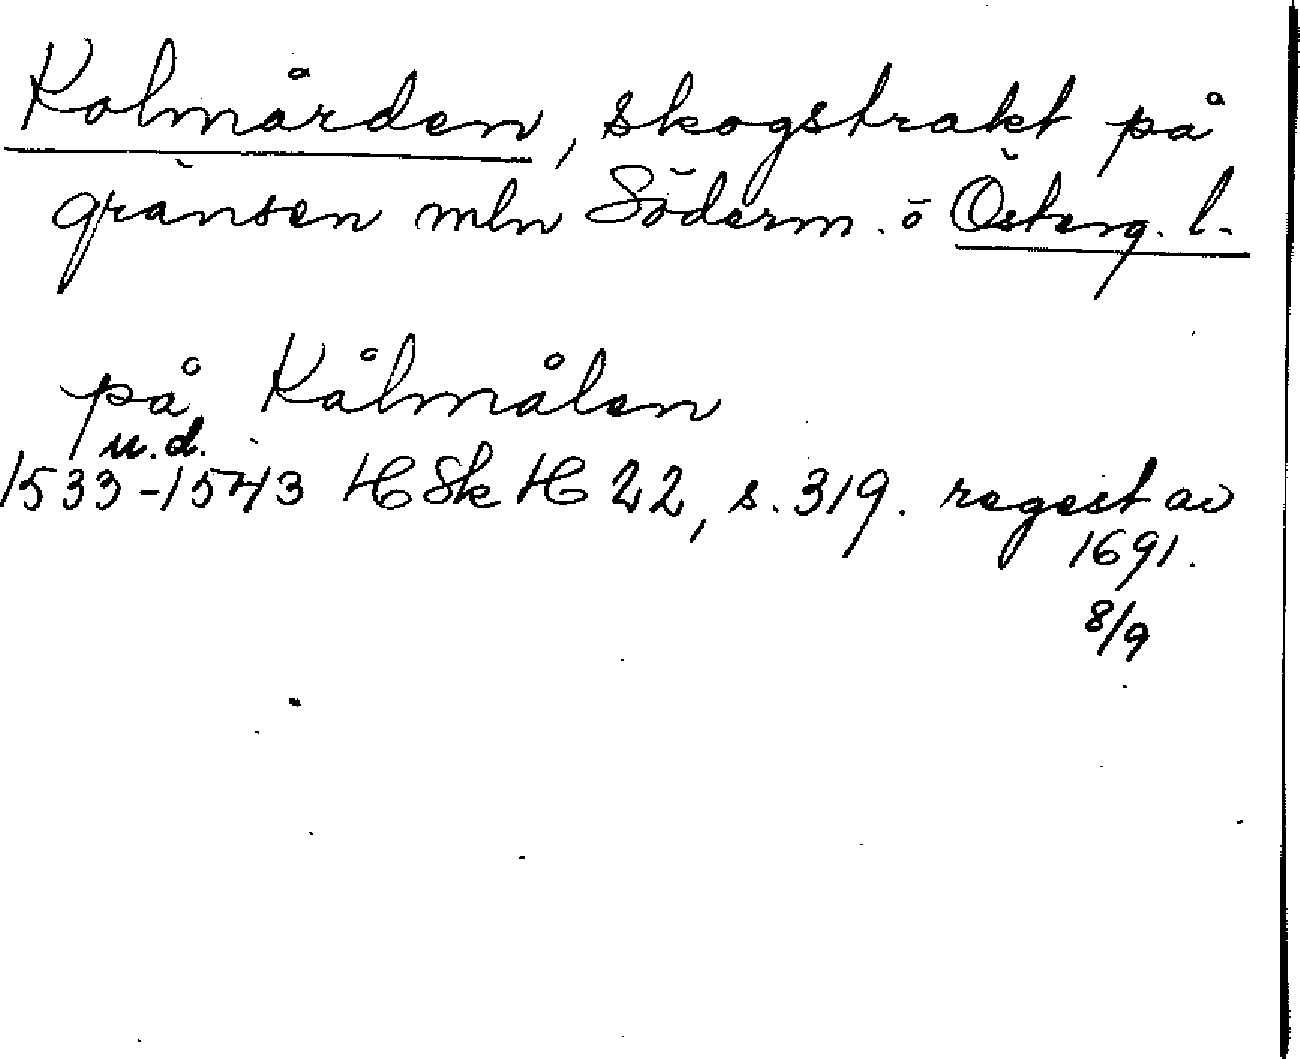 Kolmården, skogstrakt på
gränsen mln Söderm. o Österg. l.
på Kålmålen
u.d.
1533-1543 HSk H 22, s. 319. regest av
1691.
8/9